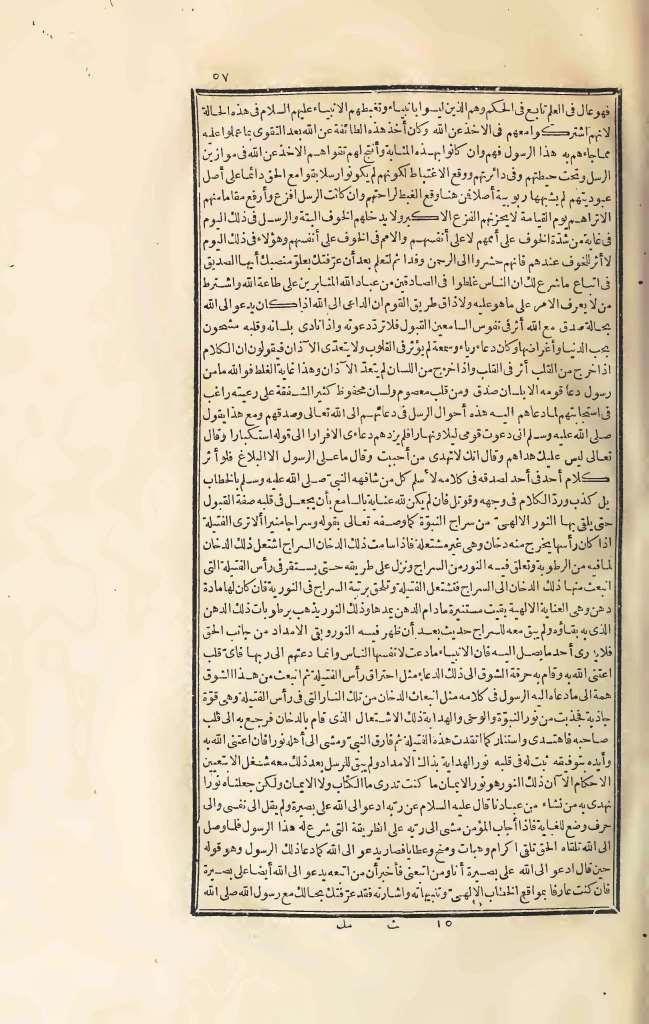 ٥٧
فهو عال فى العلم تابع فى الحكم وهم الذين ليسوا بأنبياء وتغبطهم الانبياء عليهم السلام فى هذه الحالة
لانهم اشتركوا معهم فى الاخذ عن الله وكان أخذ هذه الطائفة عن الله بعد التقوى بما عملوا عليه
مما جاءهم به هذا الرسول فهم وان كانوا بهذه المثابة وأنتج لهم تقواهم الاخذ عن الله فى موازين
الرسل وتحت حيطتهم وفى دائرتهم ووقع الاغتباط لكونهم لم يكونوا رسلا بقوامع الحق دائما على أصل
عبوديتهم لم يشبها ربوبية أصلا فمن هنا وقع الغبط لراحتهم وان كانت الرسل أفزع وأرفع مقاما منهم
ألا تراهم يوم القيامة لا يحزنهم الفزع الاكبر ولا يدخلهم الخوف البتة والرسل فى ذلك اليوم
فى غاية من شدة الخوف على أممهم لا على أنفسهم والامم فى الخوف على أنفسهم وهؤلاء فى ذلك اليوم
لا أثر للخوف عندهم فانهم حشروا الى الرحمن وفدا ثم لتعلم بعد أن عرفتك بعلو منصبك أيها الصديق
فى اتباع ما شرع لك ان الناس غلطوا فى الصادقين من عباد الله المثابرين على طاعة الله واشترط
من لا يعرف الامر على ما هو عليه ولا ذاق طريق القوم ان الداعى الى الله اذا كان يدعو الى الله
بحالة صدق مع الله أثر فى نفوس السامعين القبول فلا ترد دعوته واذا نادى بلسانه وقلبه مشحون
بحب الدنيا وأغراضها وكان دعاءه رياء وسمعة لم يؤثر فى القلوب ولا يتعدى الآذان فيقولون ان الكلام
اذا خرج من القلب أثر فى القلب واذا خرج من اللسان لم يتعد الآذان وهذا غاية الغلط فوالله ما من
رسول دعا قومه الا بلسان صدق ومن قلب معصوم ولسان محفوظ كثير الشفقة على رعيته راغب
فى استجابتهم لما دعاهم اليه هذه أحوال الرسل فى دعائهم الى الله تعالى وصدقهم ومع هذا يقول
صلى الله عليه وسلم انى دعوت قومى ليلا ونهارا فلم يزدهم دعاءى الا فرارا الى قوله استكبارا وقال
تعالى ليس عليك هداهم وقال انك لا تهدى من أحببت وقال ما على الرسول الا البلاغ فلو أثر
كلام أحد فى أحد لصدقه فى كلامه لأسلم كل من شافهه النبى صلى الله عليه وسلم بالخطاب
بل كذب ورد الكلام فى وجهه وقوتل فان لم يكن لله عناية بالسامع بأن يجعل فى قلبه صفة القبول
حتى يلقى بها النور الالهى من سراج النبوة كما وصفه تعالى بقوله وسراجا منيرا ألا ترى الفتيلة
اذا كان رأسها يخرج منه دخان وهى غير مشتعلة فاذا سامت ذلك الدخان السراج اشتعل ذلك الدخان
لما فيه من الرطوبة وتعلق فيه النور من السراج ونزل على طريقه حتى يستقر فى رأس الفتيلة التى
انبعث منها ذلك الدخان الى السراج فتشتعل الفتيلة وتلحق برتبة السراج فى النورية فان كان لها مادة
دهن وهى العناية الالهية بقيت مستنيرة ما دام الدهن يمدها وذلك النور يذهب برطوبات ذلك الدهن
الذى به بقاؤه ولم يبق معه للسراج حديث بعد أن ظهر فيه النور وبقى الامداد من جانب الحق
فلا يرى أحد ما يصل اليه فان الانبياء ما دعت لانفسها الناس وانما دعتهم الى ربها فأى قلب
اعتنى الله به وقام به حرقة الشوق الى ذلك الدعاء مثل احتراق رأس الفتيلة ثم انبعث من هذا الشوق
همة الى ما دعاه اليه الرسول فى كلامه مثل انبعاث الدخان من تلك النار التى فى رأس الفتيلة وهى قوة
جاذبة فجذبت من نور النبوة والوحى والهداية ذلك الاشتعال الذى قام بالدخان فرجع به الى قلب
صاحبه فاهتدى واستنار كما اتقدت هذه الفتيلة ثم فارق النبى ومشى الى أهله نورا فان اعتنى الله به
وأيده بتوفيقه ثبت له فى قلبه نور الهداية بذلك الامداد ولم يبق للرسل بعد ذلك معه شغل الا تعيين
الاحكام الا أن ذلك النور هو نور الايمان ما كنت تدرى ما الكتاب ولا الايمان ولكن جعلناه نورا
نهدى به من نشاء من عبادنا قال عليه السلام عن ربه ادعو الى الله على بصيرة ولم يقل الى نفسى والى
حرف وضع للغاية فاذا أجاب المؤمن مشى الى ربه على الطريقة التى شرع له هذا الرسول فلما وصل
الى الله تلقاه الحق تلقى اكرام وهبات ومنح وعطايا فصار يدعو الى الله كما دعا ذلك الرسول وهو قوله
حين قال ادعو الى الله على بصيرة أنا ومن اتبعنى فأخبر أن من اتبعه يدعو الى الله أيضا على بصيرة
فان كنت عارفا بمواقع الخطاب الالهى وتنبيهاته واشاراته فقد عرفتك بحالك مع رسول الله صلى الله
١٥ ث مك